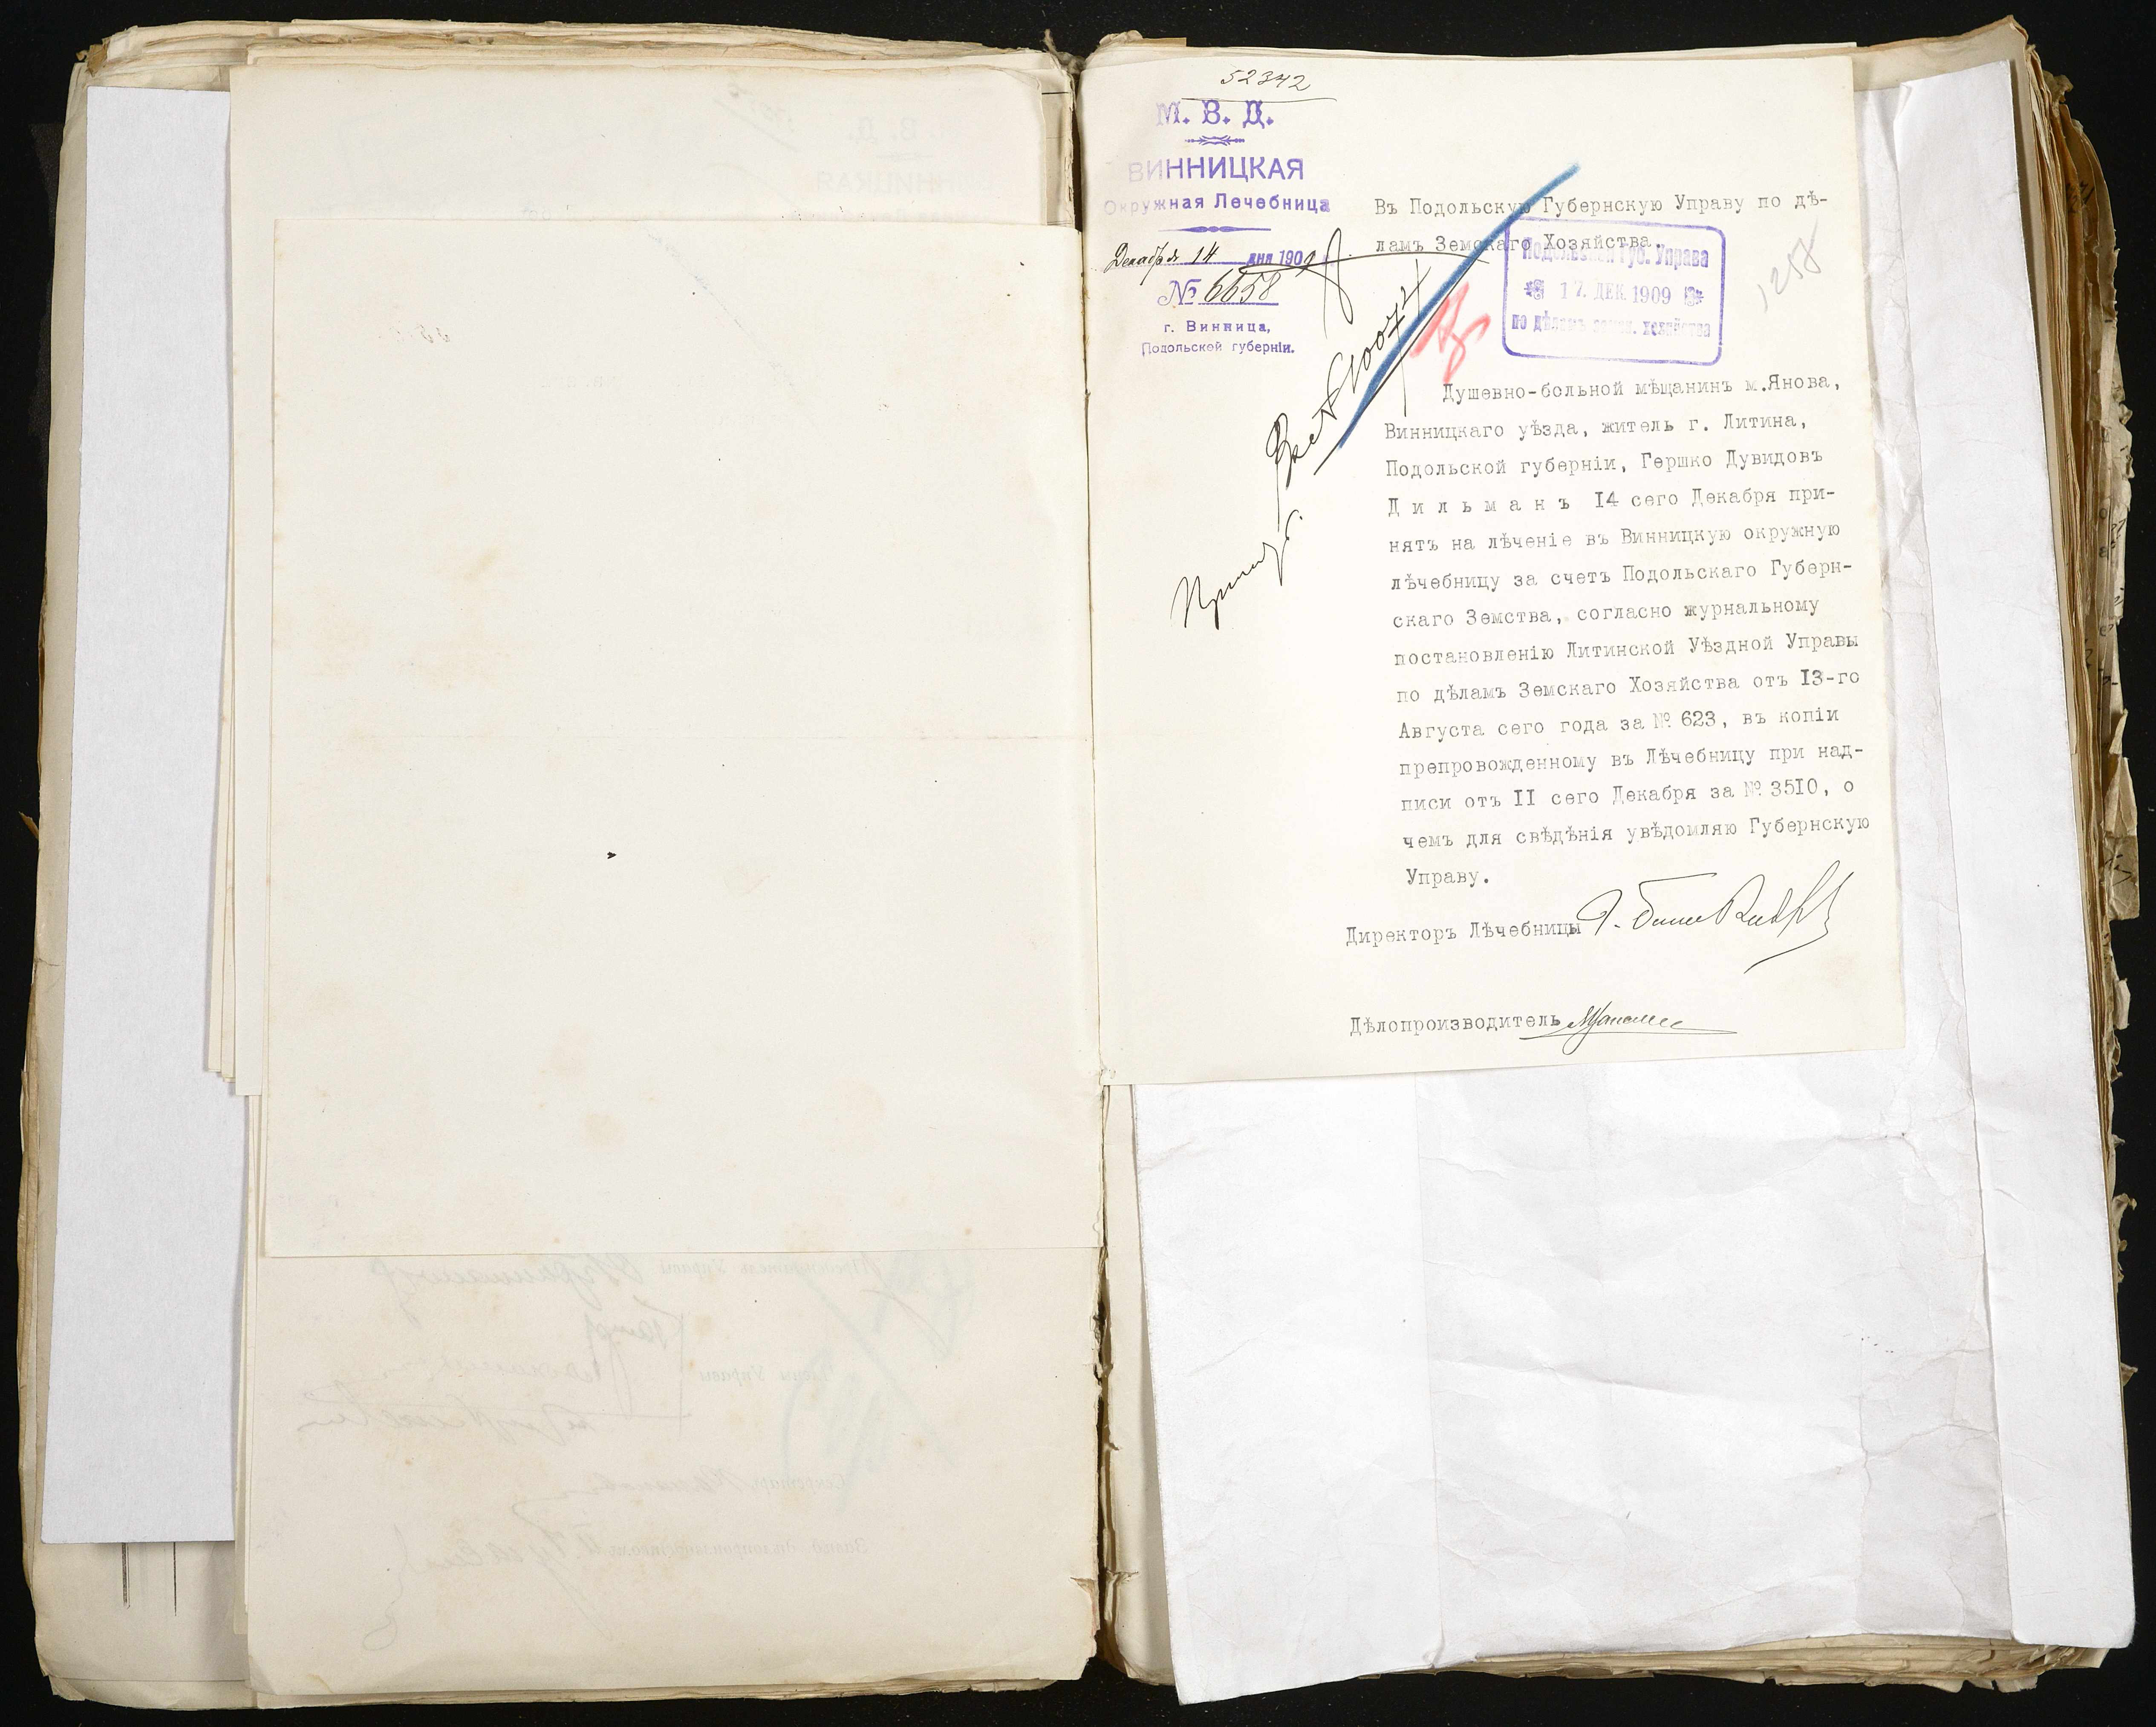 52342
М. В. Д.
ВИННИЦКАЯ
Окружная Лечебница
Декабря 14 дня 1909
№ 6658
г. Винница,
Подольской губерніи.
Въ Подольскую Губернскую Управу по дѣ-
ламъ Земскаго Хозяйства.
Подольская Губ. Управа
17. ДЕК. 1909
по дѣламъ земск. хозяйства
1258
Душевно-больной мѣщанинъ м.Янова,
Винницкаго уѣзда, житель г. Литина,
Подольской губерніи, Гершко Дувидовъ
Д и л ь м а н ъ 14 сего Декабря при-
нятъ на лѣченіе въ Винницкую окружную
лѣчебницу за счетъ Подольскаго Губерн-
скаго Земства, согласно журнальному
постановленію Литинской Уѣздной Управы
по дѣламъ Земскаго Хозяйства отъ I3-го
Августа сего года за № 623, въ копіи
препровожденному въ Лѣчебницу при над-
писи отъ II сего Декабря за № 35I0, о
чемъ для свѣдѣнія увѣдомляю Губернскую
Управу.
Директоръ Лѣчебницы
Дѣлопроизводитель